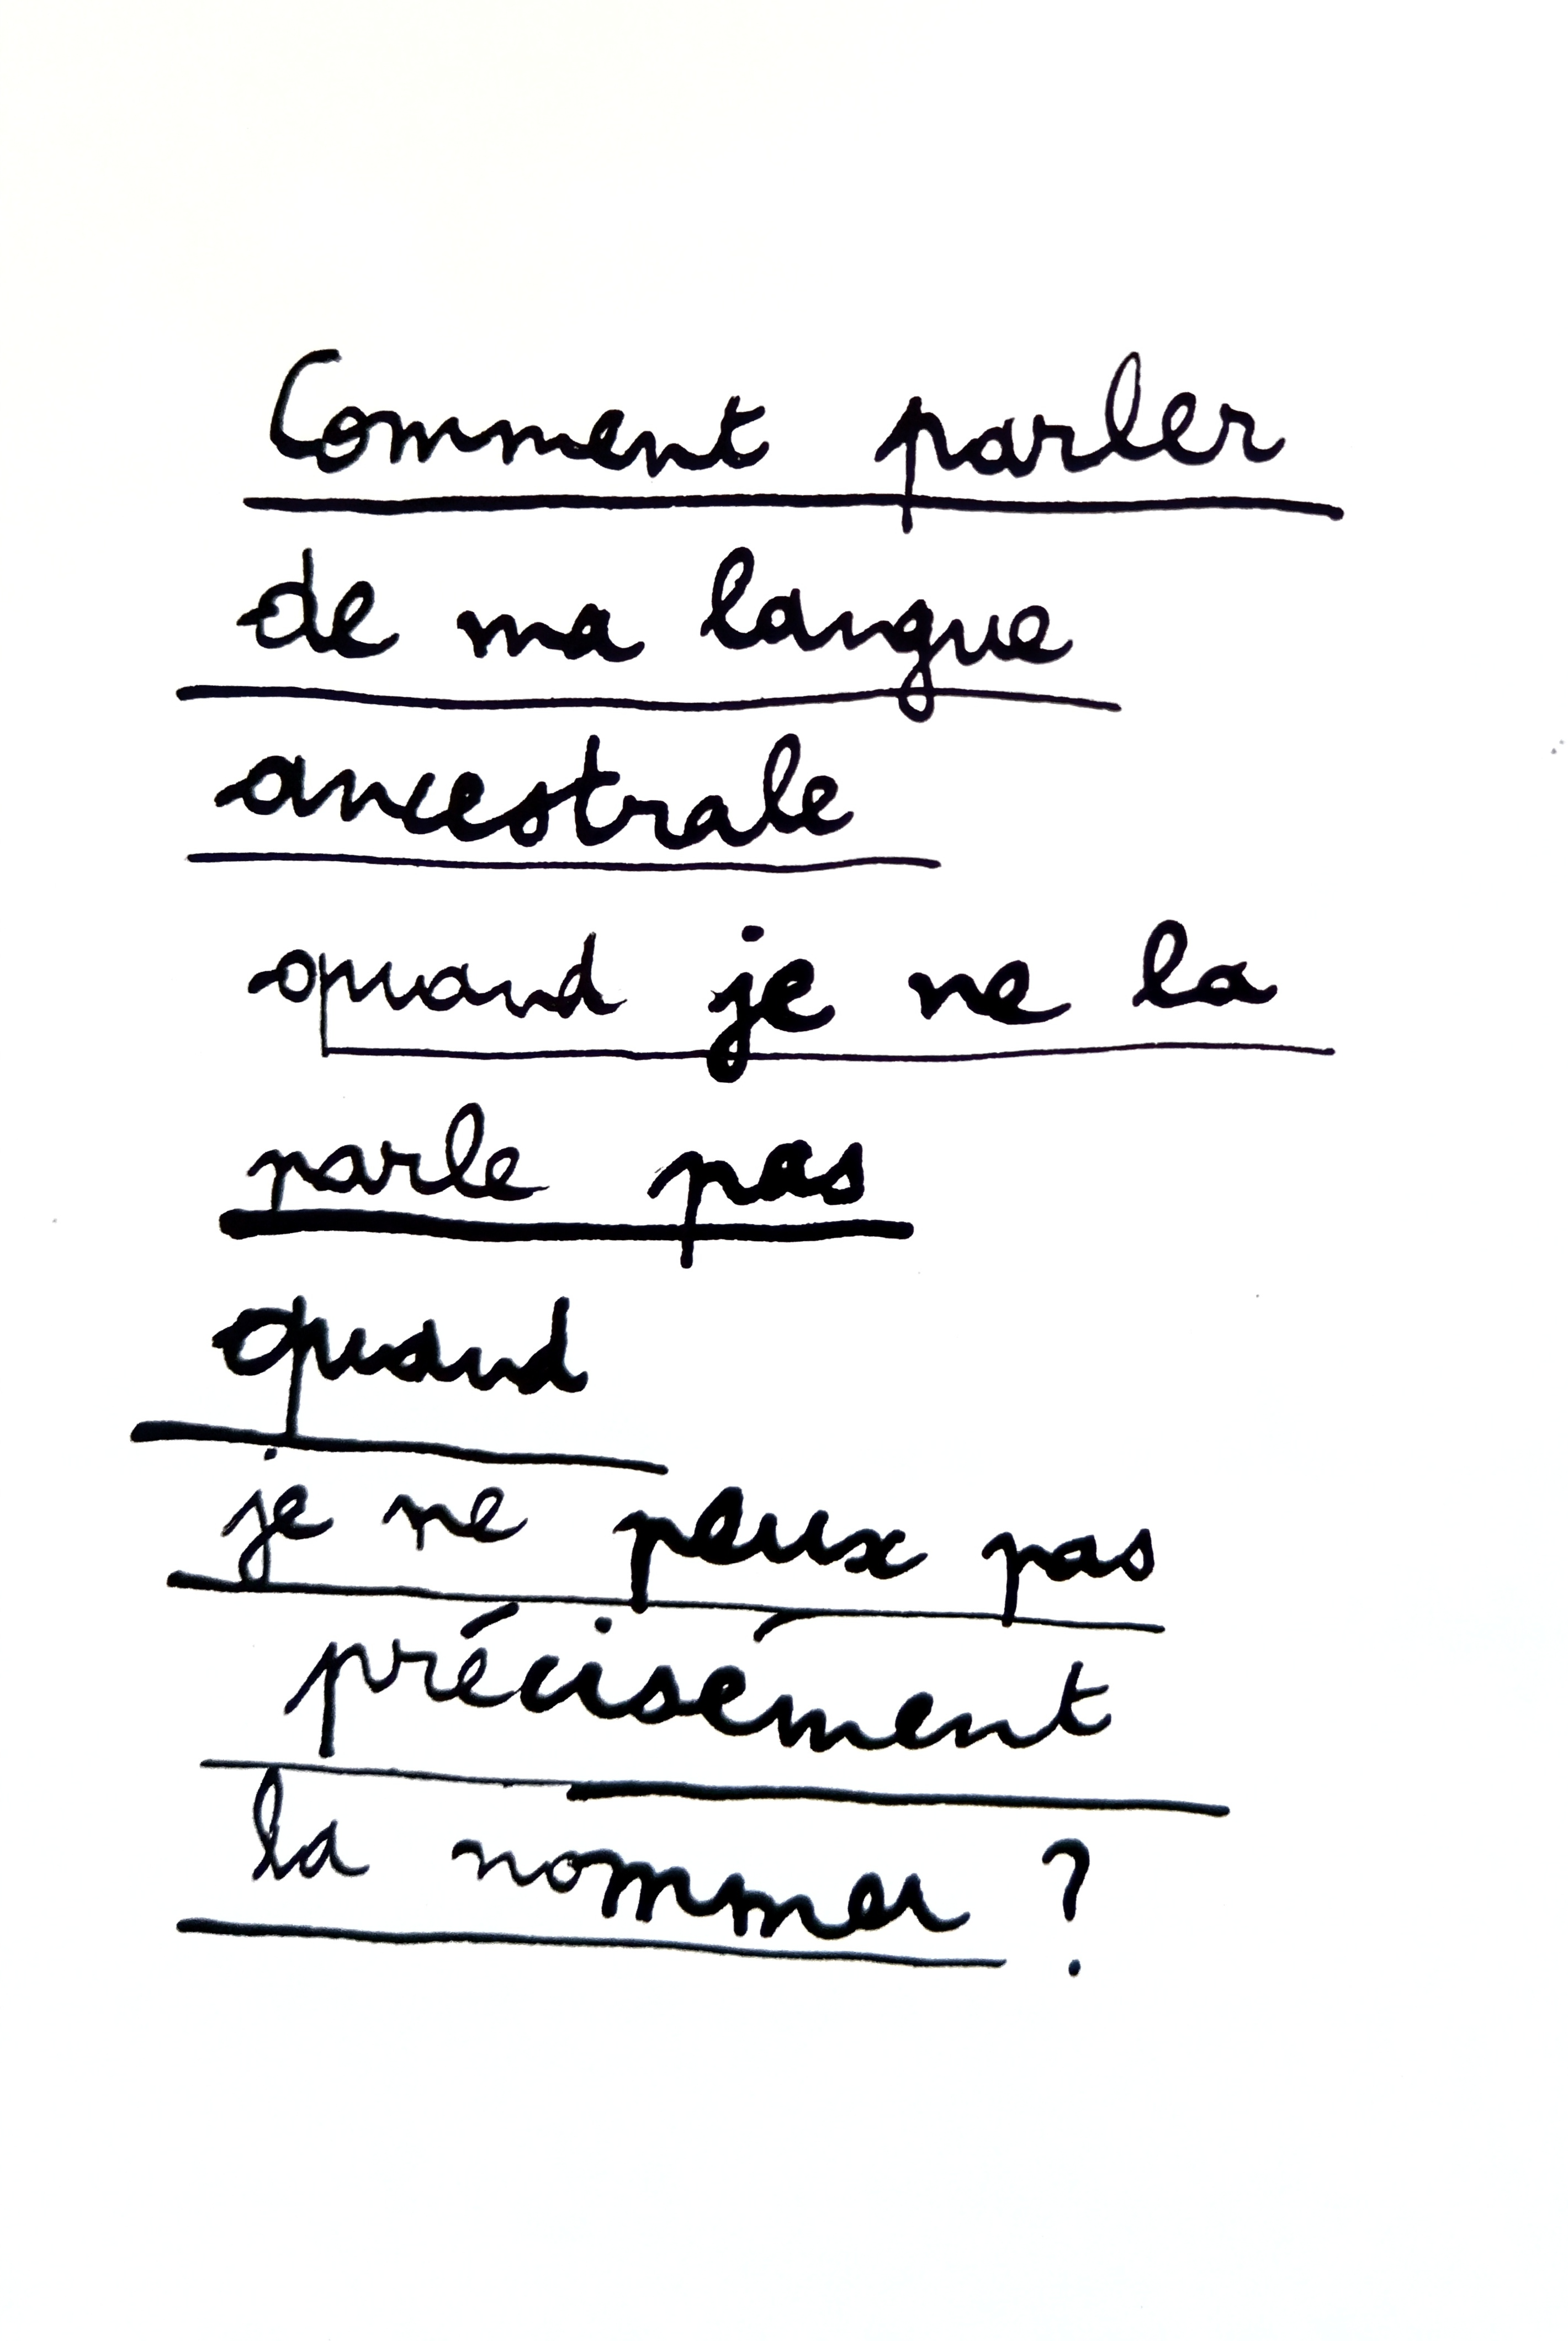 Comment parler
de ma langue
ancestrale
quand je ne la
parle pas
quand
je ne peux pas
précisément
la nommer ?